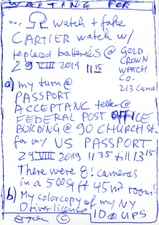 WAITING FOR
... Ω watch + fake
CARTIER watch w/
replaced batteries @ GOLD
29 VIII 2019 1115 CROWN
WATCH
CO.
213 canal
a) my turn @
PASSPORT
ACEPTANC teller @
FEDERAL POST OFFICE
BUILDING @ 90 CHURCH ST
for my US PASSPORT
29 VIII 2019 1135 till 1315
There were 8! cameras
in a 500 sq ft 45 m² room!
b) My colorcopy of my NY
Driver licence
@ UPS